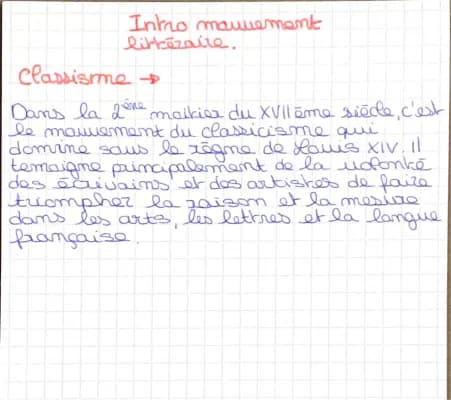 Intro mouvement
littéraire.
Classisme →
Dans la 2ème moitier du XVIIème siècle, c'est
le mouvement du classicisme qui
domine sous le règne de Louis XIV. Il
temaigne principalement de la volonté
des écrivains et des artistes de faire
triompher la raison et la mesure
dans les arts, les lettres et la langue
française.